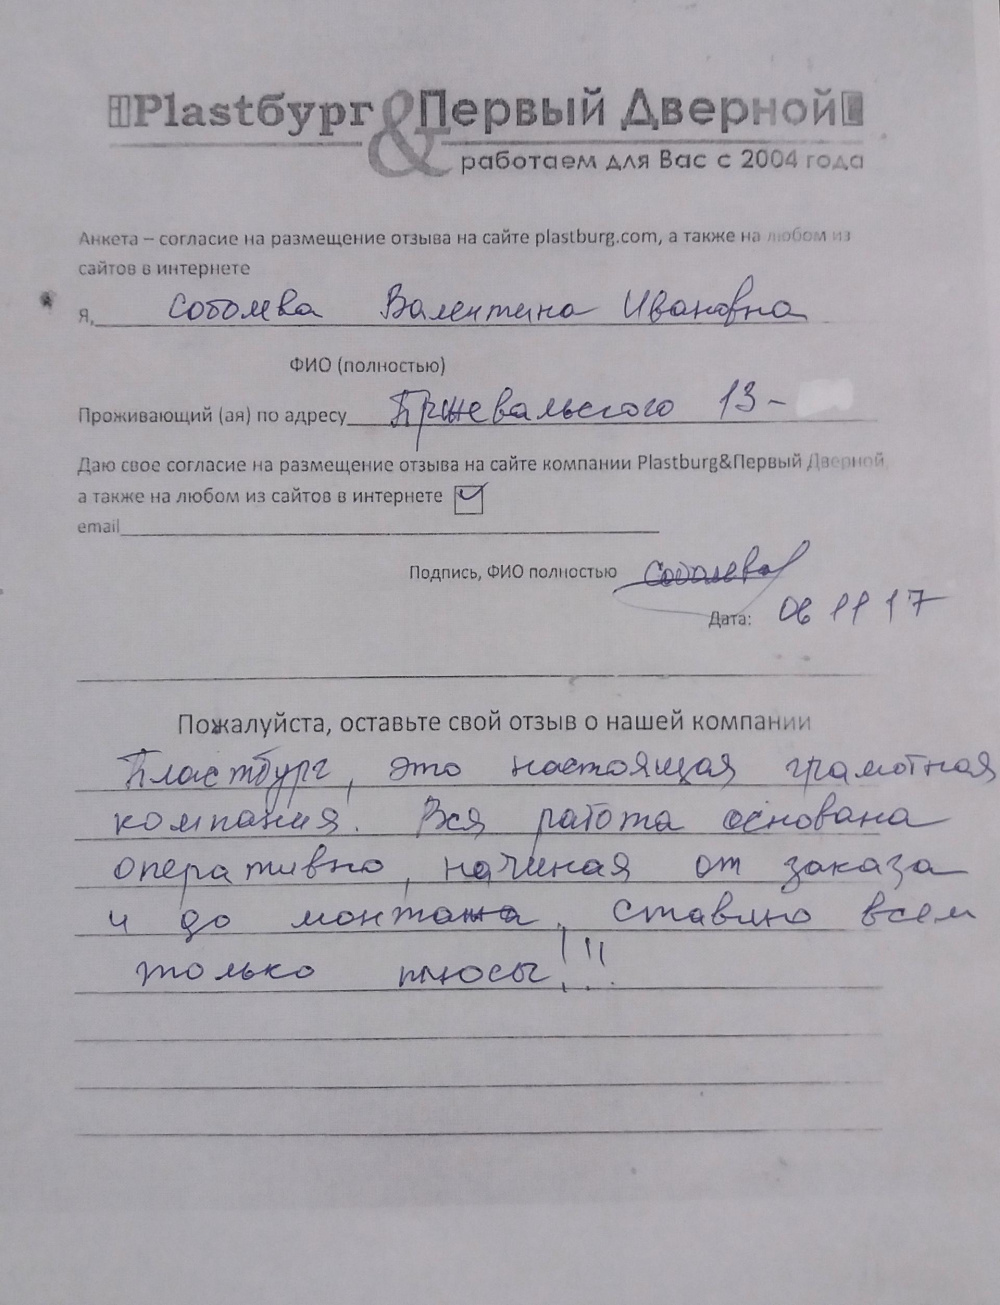 Plastбург & Первый Дверной
работаем для Вас с 2004 года
Анкета – согласие на размещение отзыва на сайте plastburg.com, а также на любом из
сайтов в интернете
Я, Соболева Валентина Ивановна
ФИО (полностью)
Проживающий (ая) по адресу Пржевальского 13-
Даю свое согласие на размещение отзыва на сайте компании Plastburg&Первый Дверной,
а также на любом из сайтов в интернете
email
Подпись, ФИО полностью Соболева
Дата: 06 11 17
Пожалуйста, оставьте свой отзыв о нашей компании
Пластбург, это настоящая грамотная
компания. Вся работа основана
оперативно, начиная от заказа
и до монтажа. Ставлю всем
только плюсы!!!